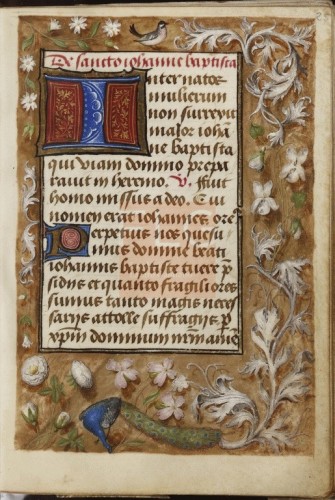 De sancto iohanne baptista
Inter natos
mulierum
non surrexit
maior ioha
ne baptista
qui viam domino prepa
rauit in heremo. V. ffuit
homo missus a deo. Cui
nomen erat iohannes. ore
Perpetuis nos quesu
mus domine beati
iohannis baptiste tuere p
sidijs et quanto fragiliores
sumus tanto magis neces
sarijs attolle suffragijs. p
xpm dominum nrm ame